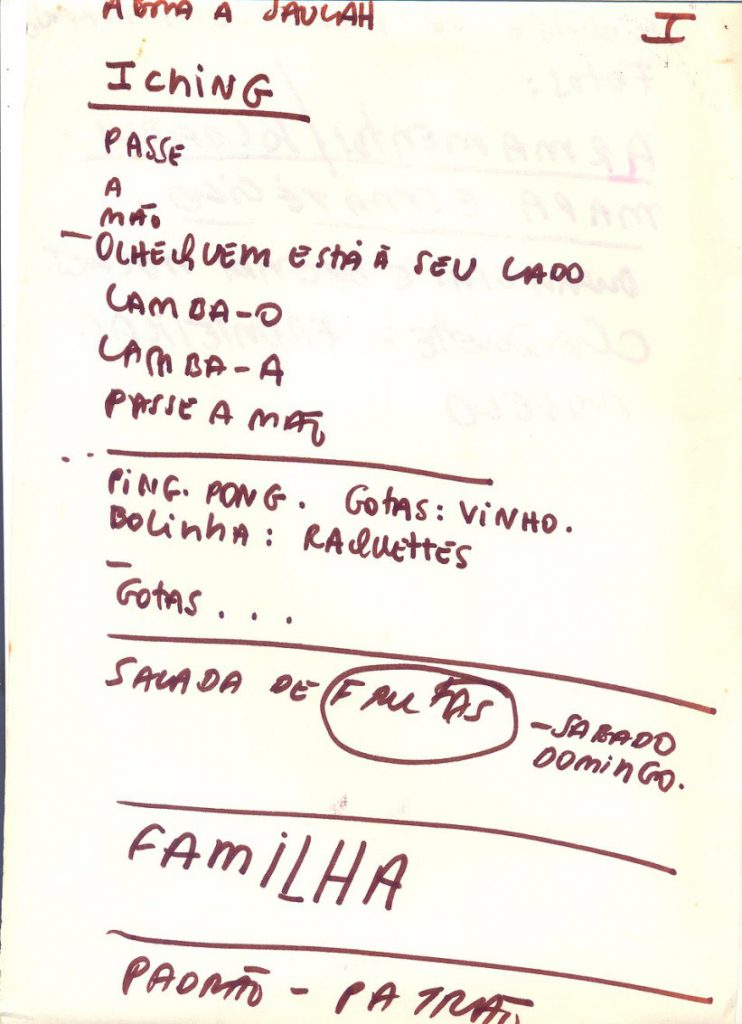 I
A JAULAH
I ChiNG
PASSE
A
MÃO
- OLHE QUEM ESTÁ À SEU LADO
LAMBA-O
LAMBA-A
PASSE A MÃO
PiNG. PONG. GOtAS: ViNHO.
BOLiNhA: RAQUETTES
-
GOtAS . . .
SALADA DE FRUtAS - SABADO
DOMiNGO.
FAMiLHA
PADRÃO - PATRÃO